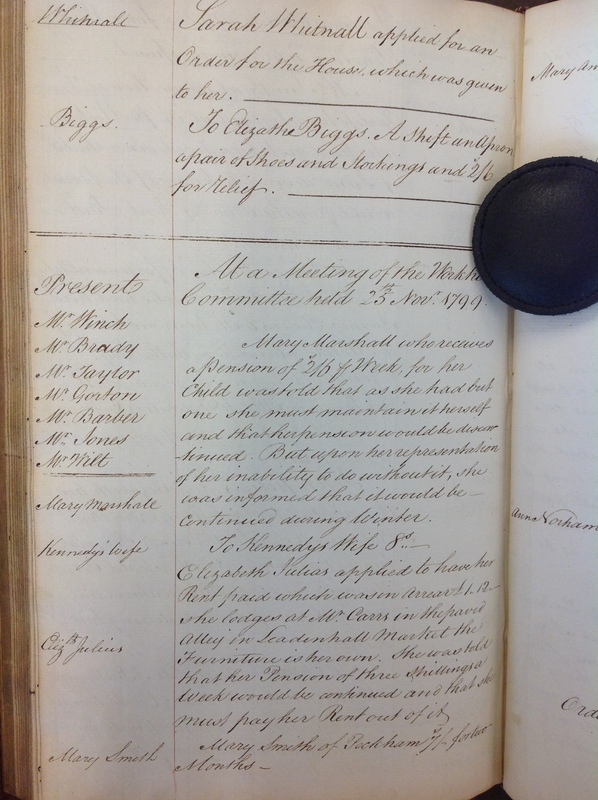 Whitnall
Sarah Whitnall applied for an
Order for the House. which was given
to her.
Biggs.
To Elizath Biggs. A Shift an Apron
a pair of Shoes and Stockings and 2/6
for Relief.
At a Meeting of the
Committee held 25th Novr. 1799.
Present
Mr Winch
Mr Brady
Mr Taylor
Mr Gorton
Mr Barber
Mr Jones
Mr Wilt
Mary Marshall who receives
a Pension of 2/6 Week, for her
Child was told that as she had but
one she must maintain it herself
and that her pension would be discon
-tinued. But upon her representation
of her inability to do without it, she
was informed that it would be
continued during Winter.
Mary Marshall
Kennedy's Wife
To Kennedys Wife 8s.
Elizabeth Julias applied to have her
Rent paid which was in Arrear £1.12
she lodges at Mr Carrs in the paved
Alley in Leadenhall Market the
Furniture is her own. She was told
that her Pension of three Shillings a
Week would be continued and that she
must pay her Rent out of it
Elizth Julius
Mary Smith
Mary Smith of Peckham for two
Months
Mary An
Ann Norham
Ord